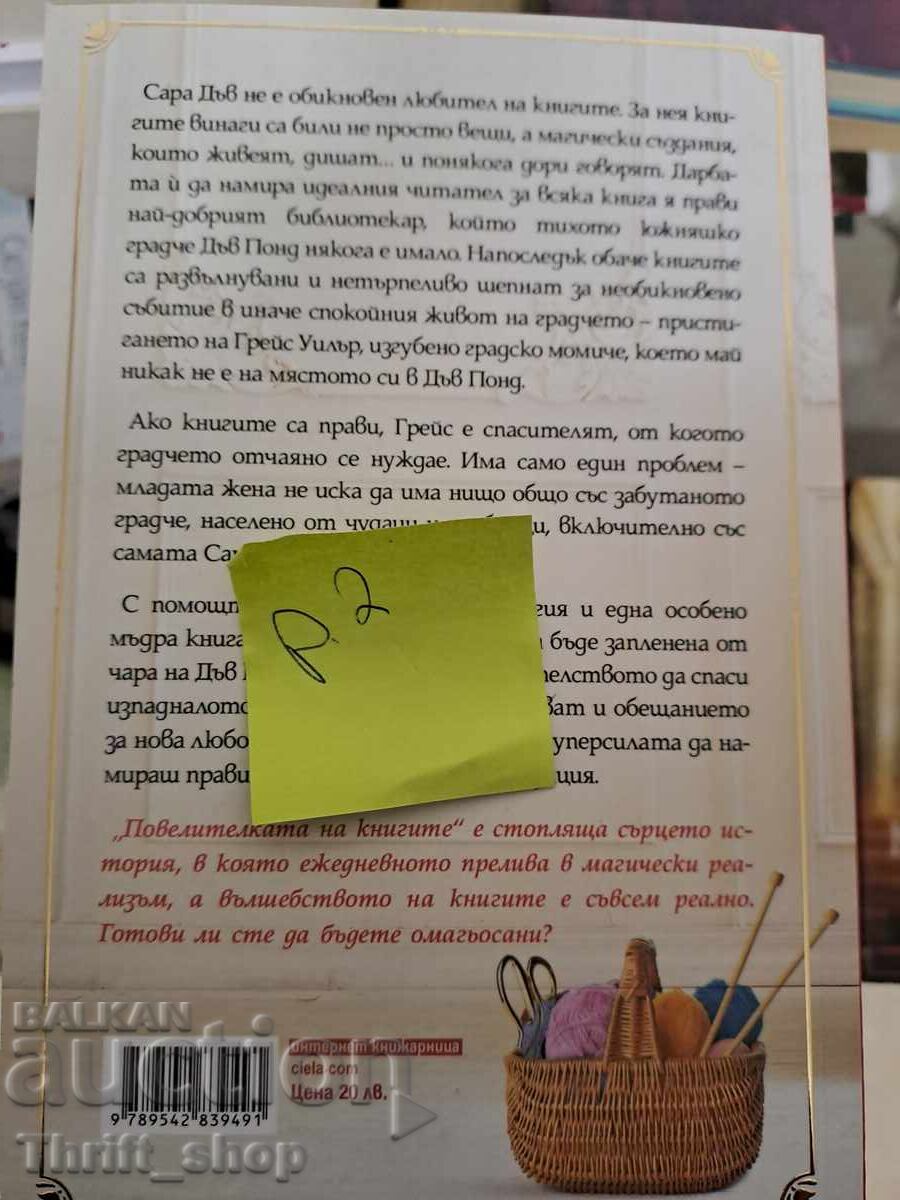 Сара Дъв не е обикновен любител на книгите. За нея кни-
гите винаги са били не просто вещи, а магически създания,
които живеят, дишат... и понякога дори говорят. Дарба-
та ѝ да намира идеалния читател за всяка книга я прави
най-добрият библиотекар, който тихото южняшко
градче Дъв Понд някога е имало. Напоследък обаче книгите
са развълнувани и нетърпеливо шепнат за необикновено
събитие в иначе спокойния живот на градчето – присти-
гането на Грейс Уилър, изгубено градско момиче, което май
никак не е на мястото си в Дъв Понд.
Ако книгите са прави, Грейс е спасителят, от когото
градчето отчаяно се нуждае. Има само един проблем –
младата жена не иска да има нищо общо със забутаното
градче, населено от чудаци включително със
самата
С и една особено
мъдра бъде запленена от
чара на Дъв да спаси
изпадналото и обещанието
за нова суперсилата да на-
мираш
р. 2
„Повелителката на книгите“ е стопляща сърцето ис-
тория, в която ежедневното прелива в магически реа-
лизъм, а вълшебството на книгите е съвсем реално.
Готови ли сте да бъдете омагьосани?
BALKAN
auction
интернет книжарница
ciela.com
Цена 20 лв.
9 789542 839491
Thrift_shop